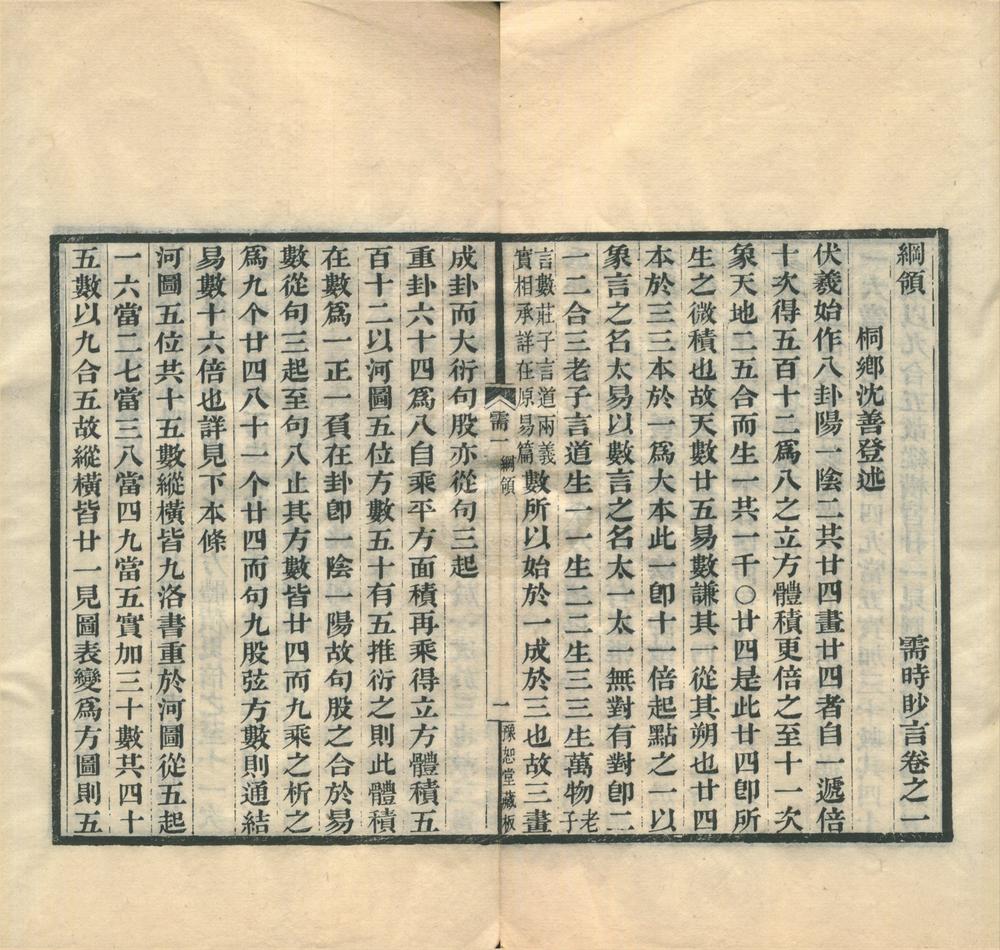 綱領　需時眇言卷之一
桐鄉沈善登述
伏羲始作八卦陽一陰二其廿四畫廿四者自一遞倍
十次得五百十二爲八之立方體積更倍之至十一次
象天地二五合而生一共一千〇廿四是此廿四卽所
生之微積也故天數廿五易數謙其一從其朔也廿四
本於三三本於一爲大本此一卽十一倍起點之一以
象言之名太易以數言之名太一太一無對有對卽二
一二合三老子言道生一一生二二生三三生萬物老子
言數莊子言道兩義
實相承詳在原易篇
數所以始於一成於三也故三畫
需一　綱領
一
豫恕堂藏板
成卦而大衍句股亦從句三起
重卦六十四爲八自乘平方面積再乘得立方體積五
百十二以河圖五位方數五十有五推衍之則此體積
在數爲一正一負在卦卽一陰一陽故句股之合於易
數從句三起至句八止其方數皆廿四而九乘之析之
爲九个廿四八十一个廿四而句九股弦方數則通結
易數十六倍也詳見下本條
河圖五位共十五數縱橫皆九洛書重於河圖從五起
一六當二七當三八當四九當五實加三十數共四十
五數以九合五故縱橫皆廿一見圖表變爲方圖則五